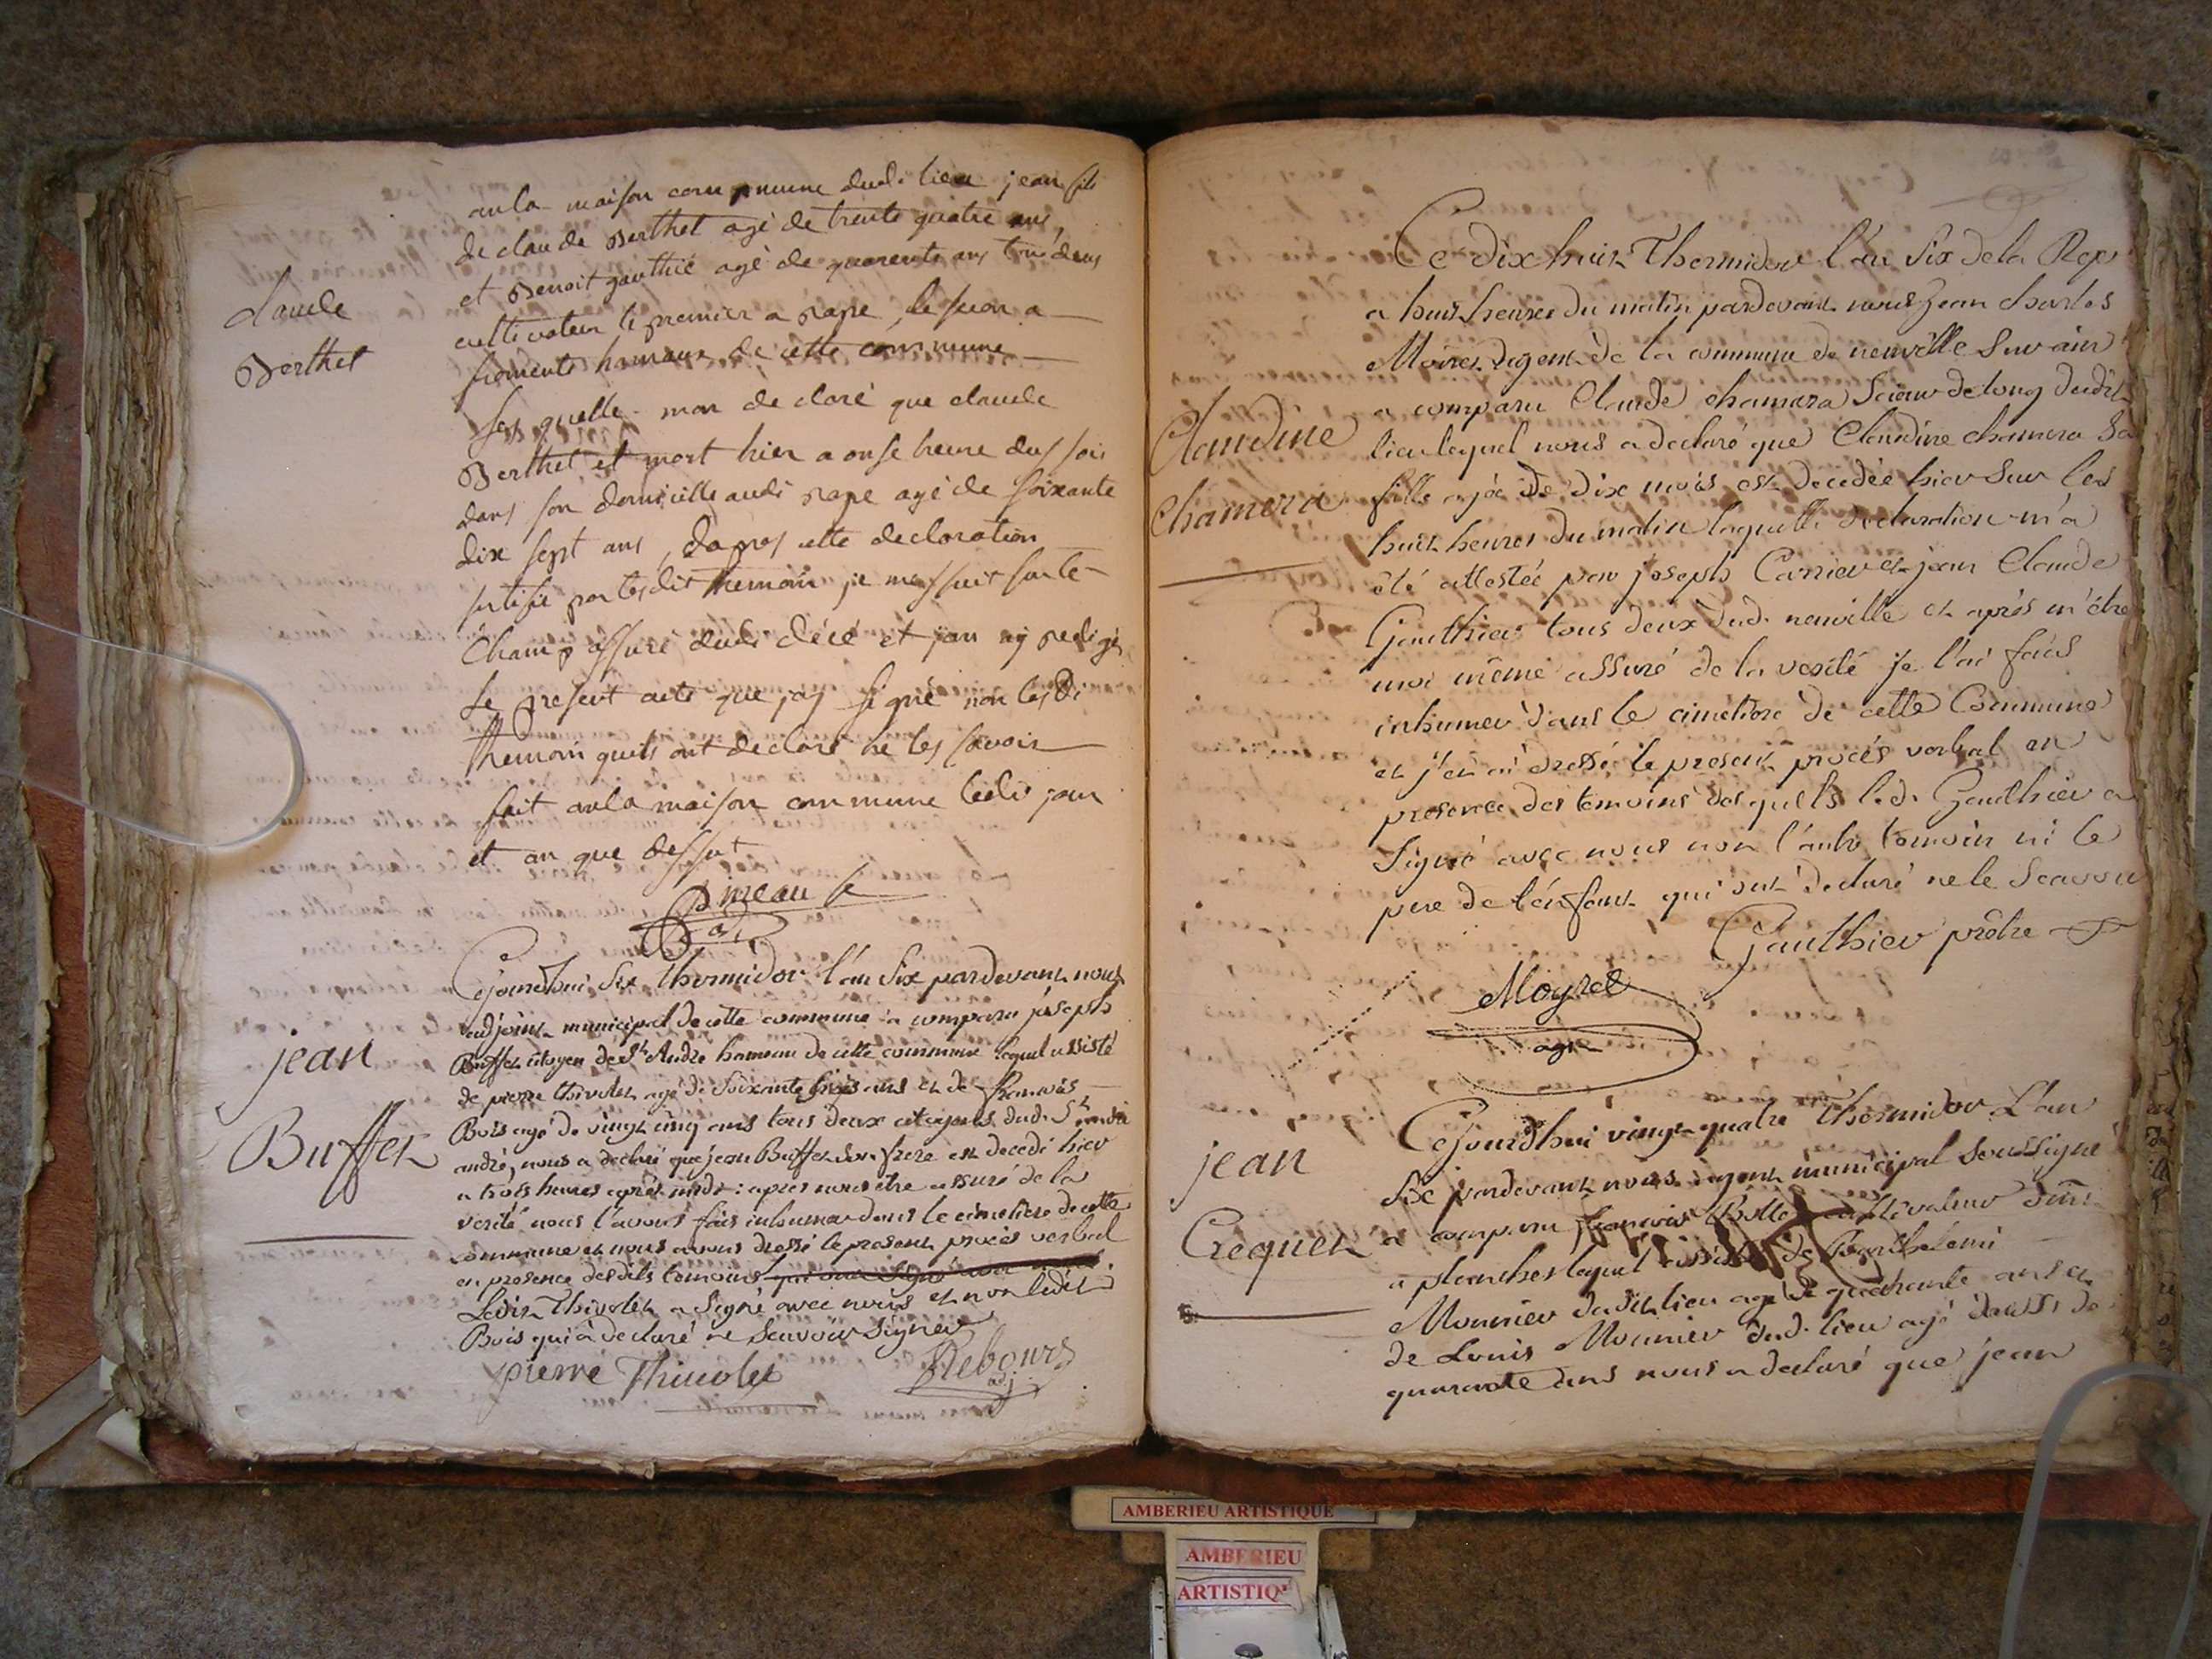 claude
Berthet
aula maison commune dudi lieu jean fils
de claude Berthet agé de trente quatre ans,
et Benoit gauthié agé de quarente ans tou deux
cultivateur le premier a rape, le segon a
fromente hamaux de cette commune
les quelle mon declaré que claude
Berthet et mort hier a onse heure du soir
dans son domicille audi rape agé de soixante
dix sept ans, dapres cette declaration
sertifié par lesdit themoin je me suit sur le
champ assuré dudi décé et jan ay redigé
le present acte que jay signé non lesdi
themoin quils ont declaré ne les savoir
fait aula maison commune ledi jour
et an que dessut
jean
Buffet
Cejourdhui six thermidor l'an six pardevant nous
adjoint municipal de cette commune a comparu joseph
Buffet citoyen de St André hameau de cette commune lequel assisté
de pierre thivolet agé de soixante trois ans et de francois
Bois agé de vingt cinq ans tous deux citoyens dud. St
andré, nous a declaré que jean Buffet son frere est decedé hier
a trois heures après midi : apres nous etre assuré de la
verité nous l'avons fais inhumer dans le cimetiere de cette
commune et nous avons dressé le present procès verbal
en presence desdits temoins qui ont signé avec nous.
Ledit Thivolet a signé avec nous et non ledit
Bois qui a declaré ne scavoir signer
pierre Thivolet
Debours
adj
Claudine
chamera
Ce dix huit Thermidor l'an six de la Rep
a huit heures du matin pardevant nous Jean charles
Moiret agent de la commune de neuville sur ain
a comparu Claude chamera scieur de long dudit
lieu lequel nous a declaré que Claudine chamera sa
fille agée de dix mois est decedée hier sur les
huit heures du matin laquelle declaration m'a
été attestée par joseph Carrier et jean Claude
Gauthier tous deux dud. neuville et après m'être
moi même assuré de la verité je l'ai fais
inhumer dans le cimetiere de cette Commune
et j'en ai dressé le present procès verbal en
presence des temoins desquels led. Gauthier a
signé avec nous non l'autre temoin ni le
pere de l'enfant qui ont declaré ne le scavoir
Gauthier prêtre
Moyret
agt
jean
Crequet
Cejourdhui vingt quatre Thermidor L'an
Six pardevant nous agent municipal soussigné
a comparu francois cultivateur
a planches lequel assisté de Barthelemi
Mounier dudit lieu agé de quarante ans et
de Louis Mounier dud. lieu agé daussi de
quarante ans nous a declaré que jean
AMBERIEU ARTISTIQUE
AMBERIEU
ARTISTIQ